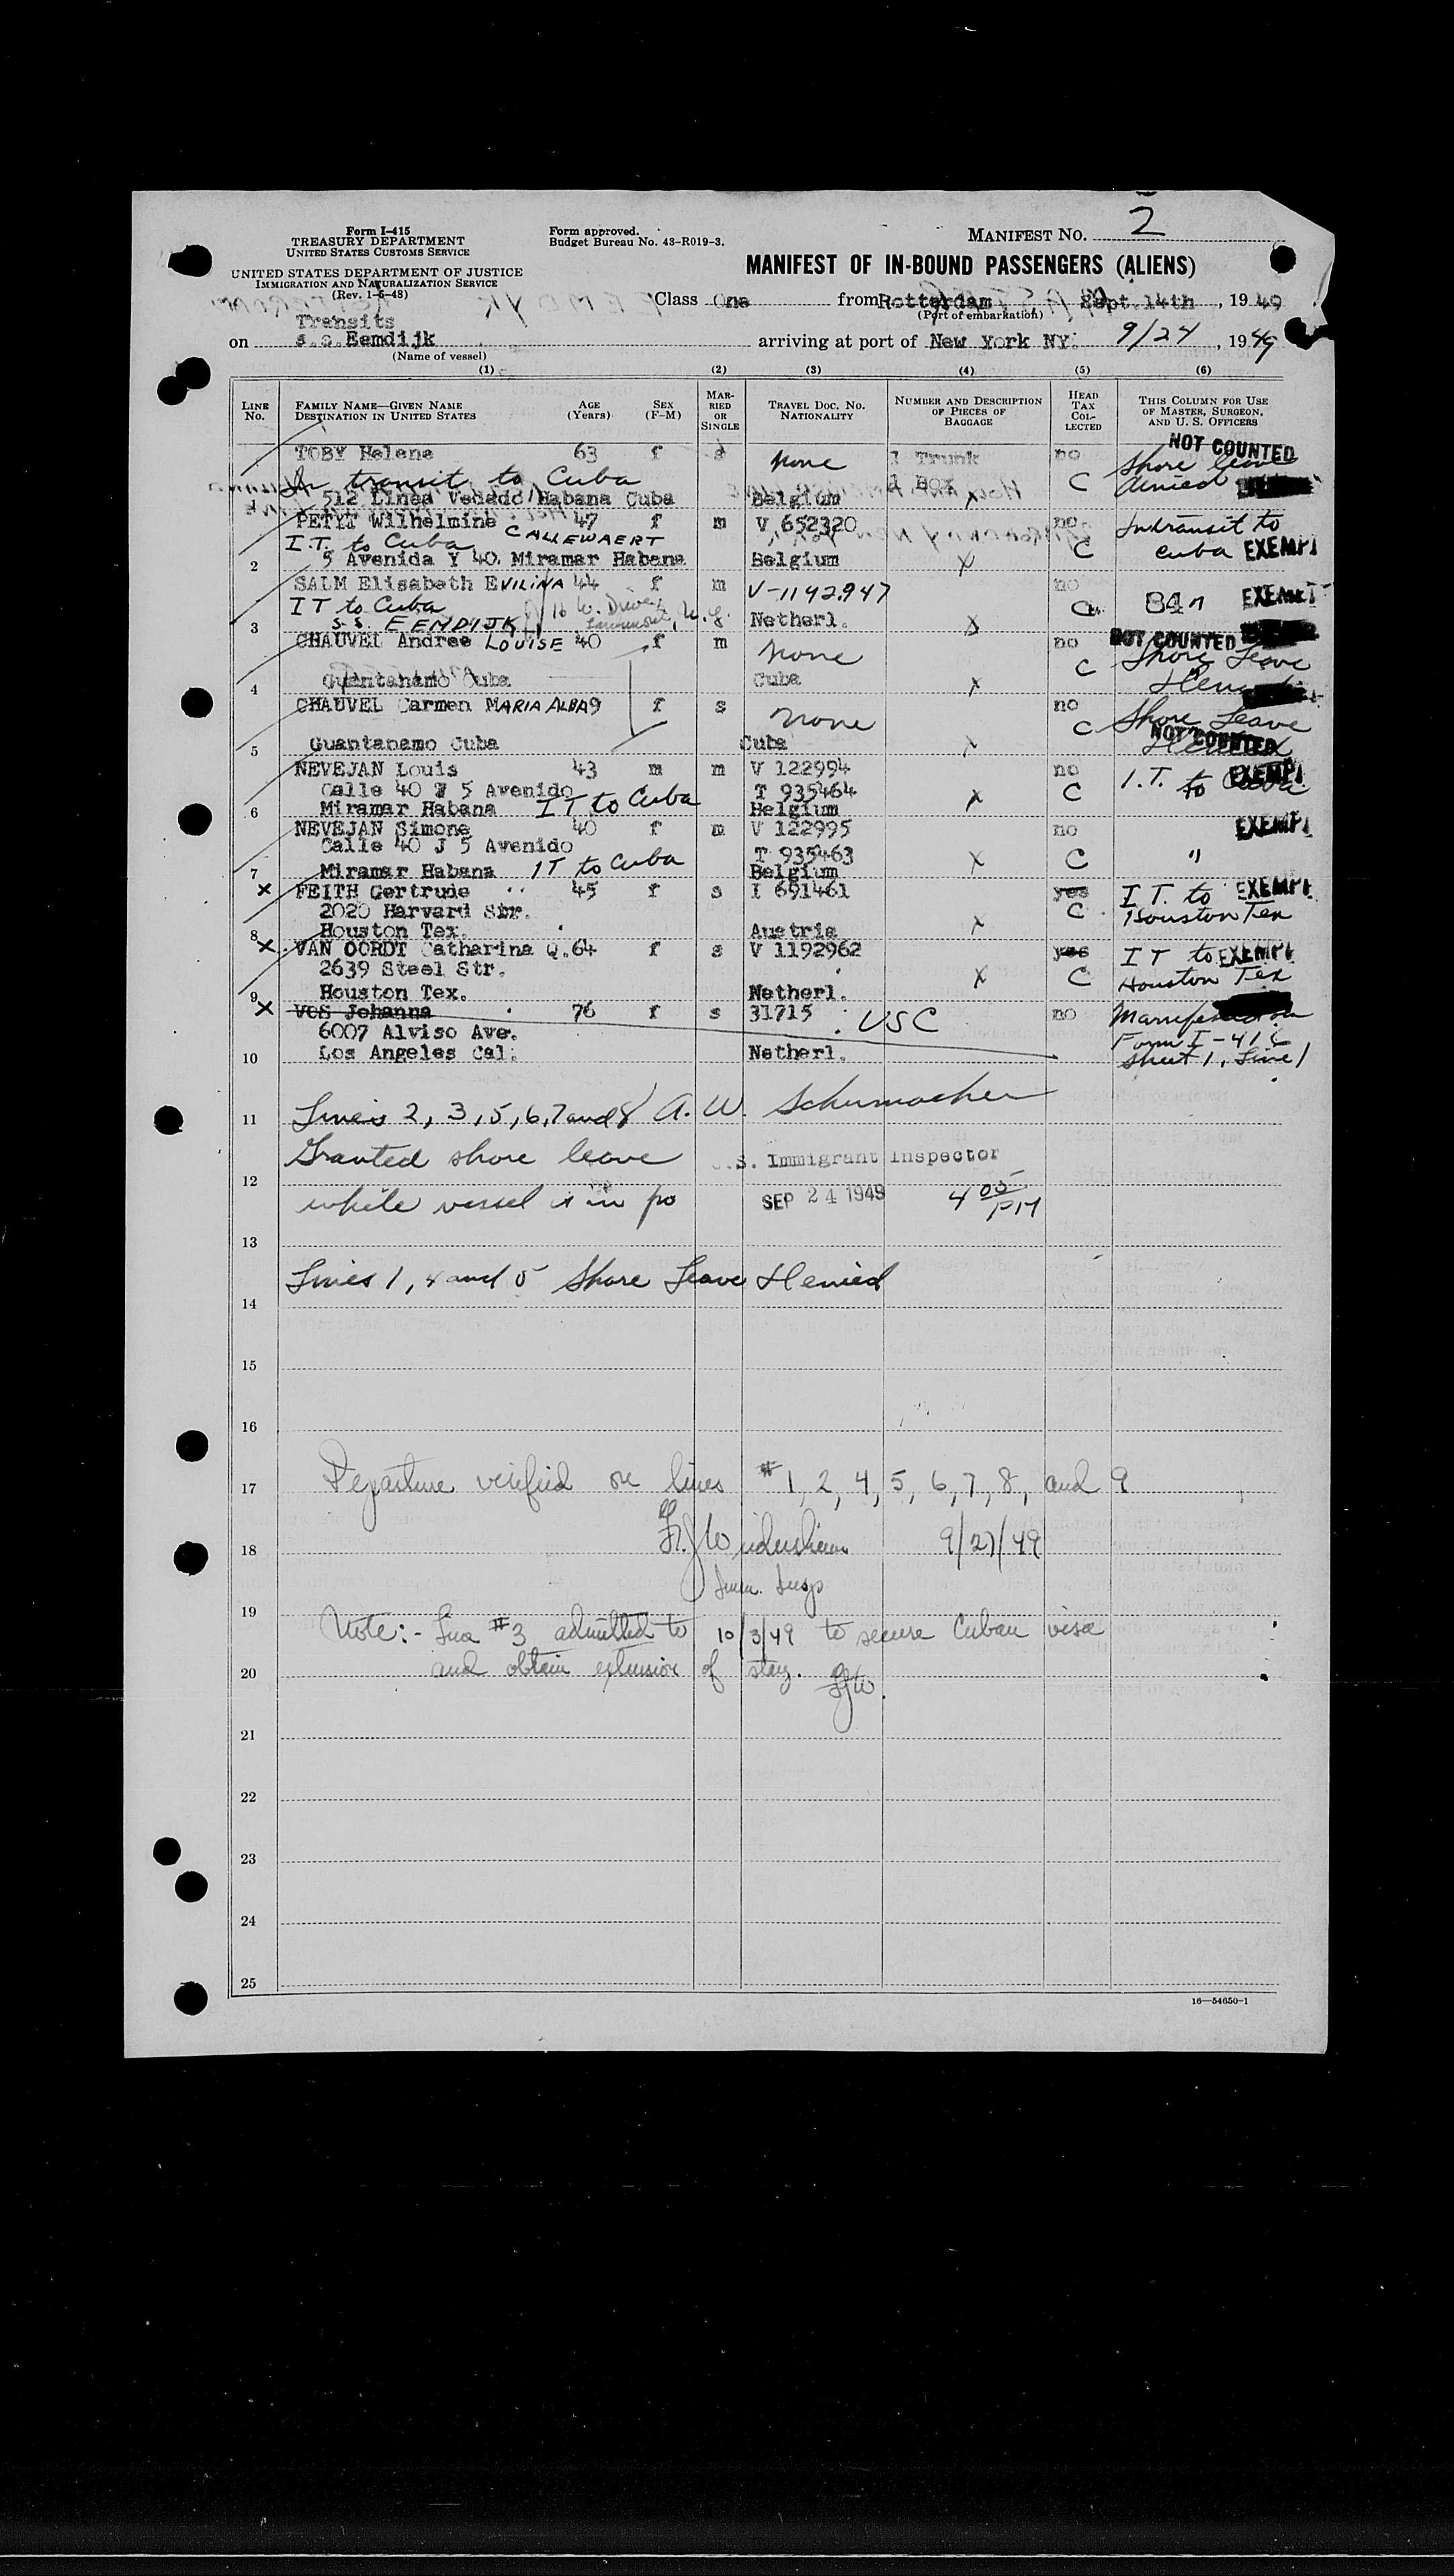 2
Form I-415
TREASURY DEPARTMENT
UNITED STATES CUSTOMS SERVICE
UNITED STATES DEPARTMENT OF JUSTICE
IMMIGRATION AND NATURALIZATION SERVICE
(Rev. 1-6-48)
Form approved.
Budget Bureau No. 43-R019-3.
MANIFEST NO.
MANIFEST OF IN-BOUND PASSENGERS (ALIENS)
Class One from Rotterdam Sept. 14th, 1949
(Port of embarkation)
Transits
on s.s. Eemdijk arriving at port of New York NY. 9/24, 1949
(Name of vessel)
(1) (2) (3) (4) (5) (6)
LINE NO. FAMILY NAME—GIVEN NAME DESTINATION IN UNITED STATES AGE (Years) SEX (F-M) MARRIED OR SINGLE TRAVEL DOC. NO. NATIONALITY NUMBER AND DESCRIPTION OF PIECES OF BAGGAGE HEAD TAX COLLECTED THIS COLUMN FOR USE OF MASTER, SURGEON, AND U. S. OFFICERS
NOT COUNTED
TOBY Helene 63 f s None 1 Trunk no Shore leave
In transit to Cuba 1 Box C denied
1 512 Linea Vedado Habana Cuba Belgium x
PETYT Wilhelmine 47 f m V 652320 no Intransit to
I.T. to Cuba CALLEWAERT C Cuba EXEMPT
2 5 Avenida Y 40. Miramar Habana Belgium x
SALM Elisabeth EVILINA 44 f m V-1142947 no
IT to Cuba 16 W. Drive C 84 EXEMPT
3 S.S. EEMDIJK Netherl. x
CHAUVEL Andree LOUISE 40 f m None no NOT COUNTED
C Shore Leave
4 Guantanamo Cuba Cuba x Denied
CHAUVEL Carmen MARIA ALBA 9 f s None no Shore Leave
C Denied NOT COUNTED
5 Guantanamo Cuba Cuba x
NEVEJAN Louis 43 m m V 122994 no I.T. EXEMPT
Calle 40 J 5 Avenido T 935464 C to Cuba
6 Miramar Habana IT to Cuba Belgium x
NEVEJAN Simone 40 f m V 122995 no EXEMPT
Calle 40 J 5 Avenido T 935463 C "
7 Miramar Habana IT to Cuba Belgium x
x FEITH Gertrude 45 f s I 691461 yes I T. to EXEMPT
2020 Harvard Str. C Houston Tex
8 Houston Tex. Austria x
x VAN OORDT Catharina Q. 64 f s V 1192962 yes I T to EXEMPT
2639 Steel Str. C Houston Tex
9 Houston Tex. Netherl. x
x VOS Johanna 76 f s 31715 USC no
6007 Alviso Ave. Form I-416
10 Los Angeles Cal. Netherl. Sheet 1, Line 1
11 Lines 2, 3, 5, 6, 7 and 8 A. W. Schumacher
12 Granted shore leave U.S. Immigrant Inspector
13 while vessel is in po SEP 24 1949 4 05 PM
14 Lines 1, 4 and 5 Shore Leave Denied
15
16
17 Departure verified on lines #1, 2, 4, 5, 6, 7, 8, and 9
18 9/27/49
Imm. Insp
19 Note:- Line #3 admitted to 10/3/49 to secure Cuban visa
20 and obtain extension of stay.
21
22
23
24
25
16—54650-1